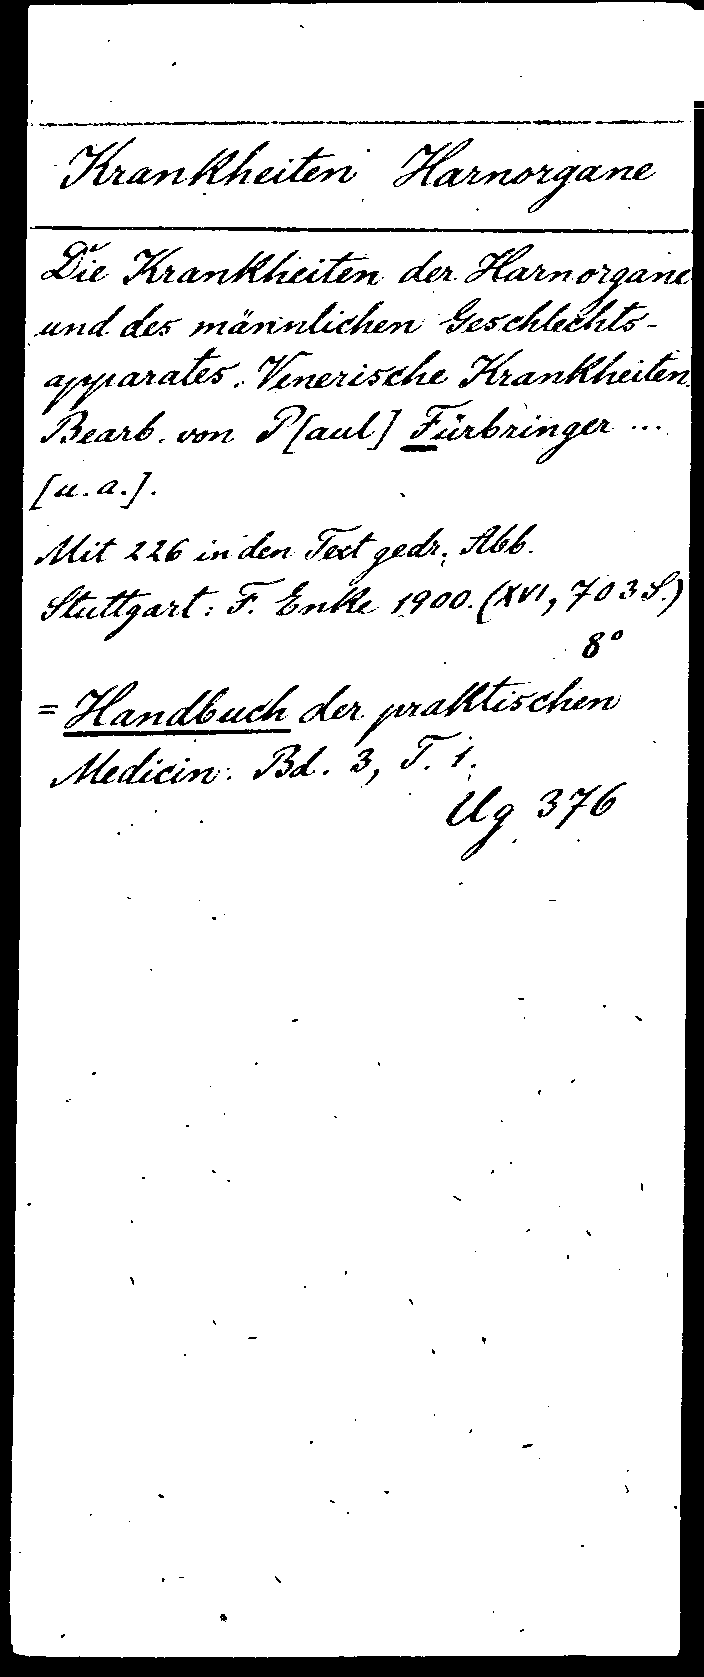 Krankheiten Harnorgane
Die Krankheiten der Harnorgane
und des männlichen Geschlechts-
apparates. Venerische Krankheiten.
Bearb. von P[aul] Fürbringer ...
[u. a.].
Mit 226 in den Text gedr. Abb.
Stuttgart: F. Enke 1900. (XVI, 703 S.)
8°
= Handbuch der praktischen
Medicin. Bd. 3, T. 1.
Ug 376